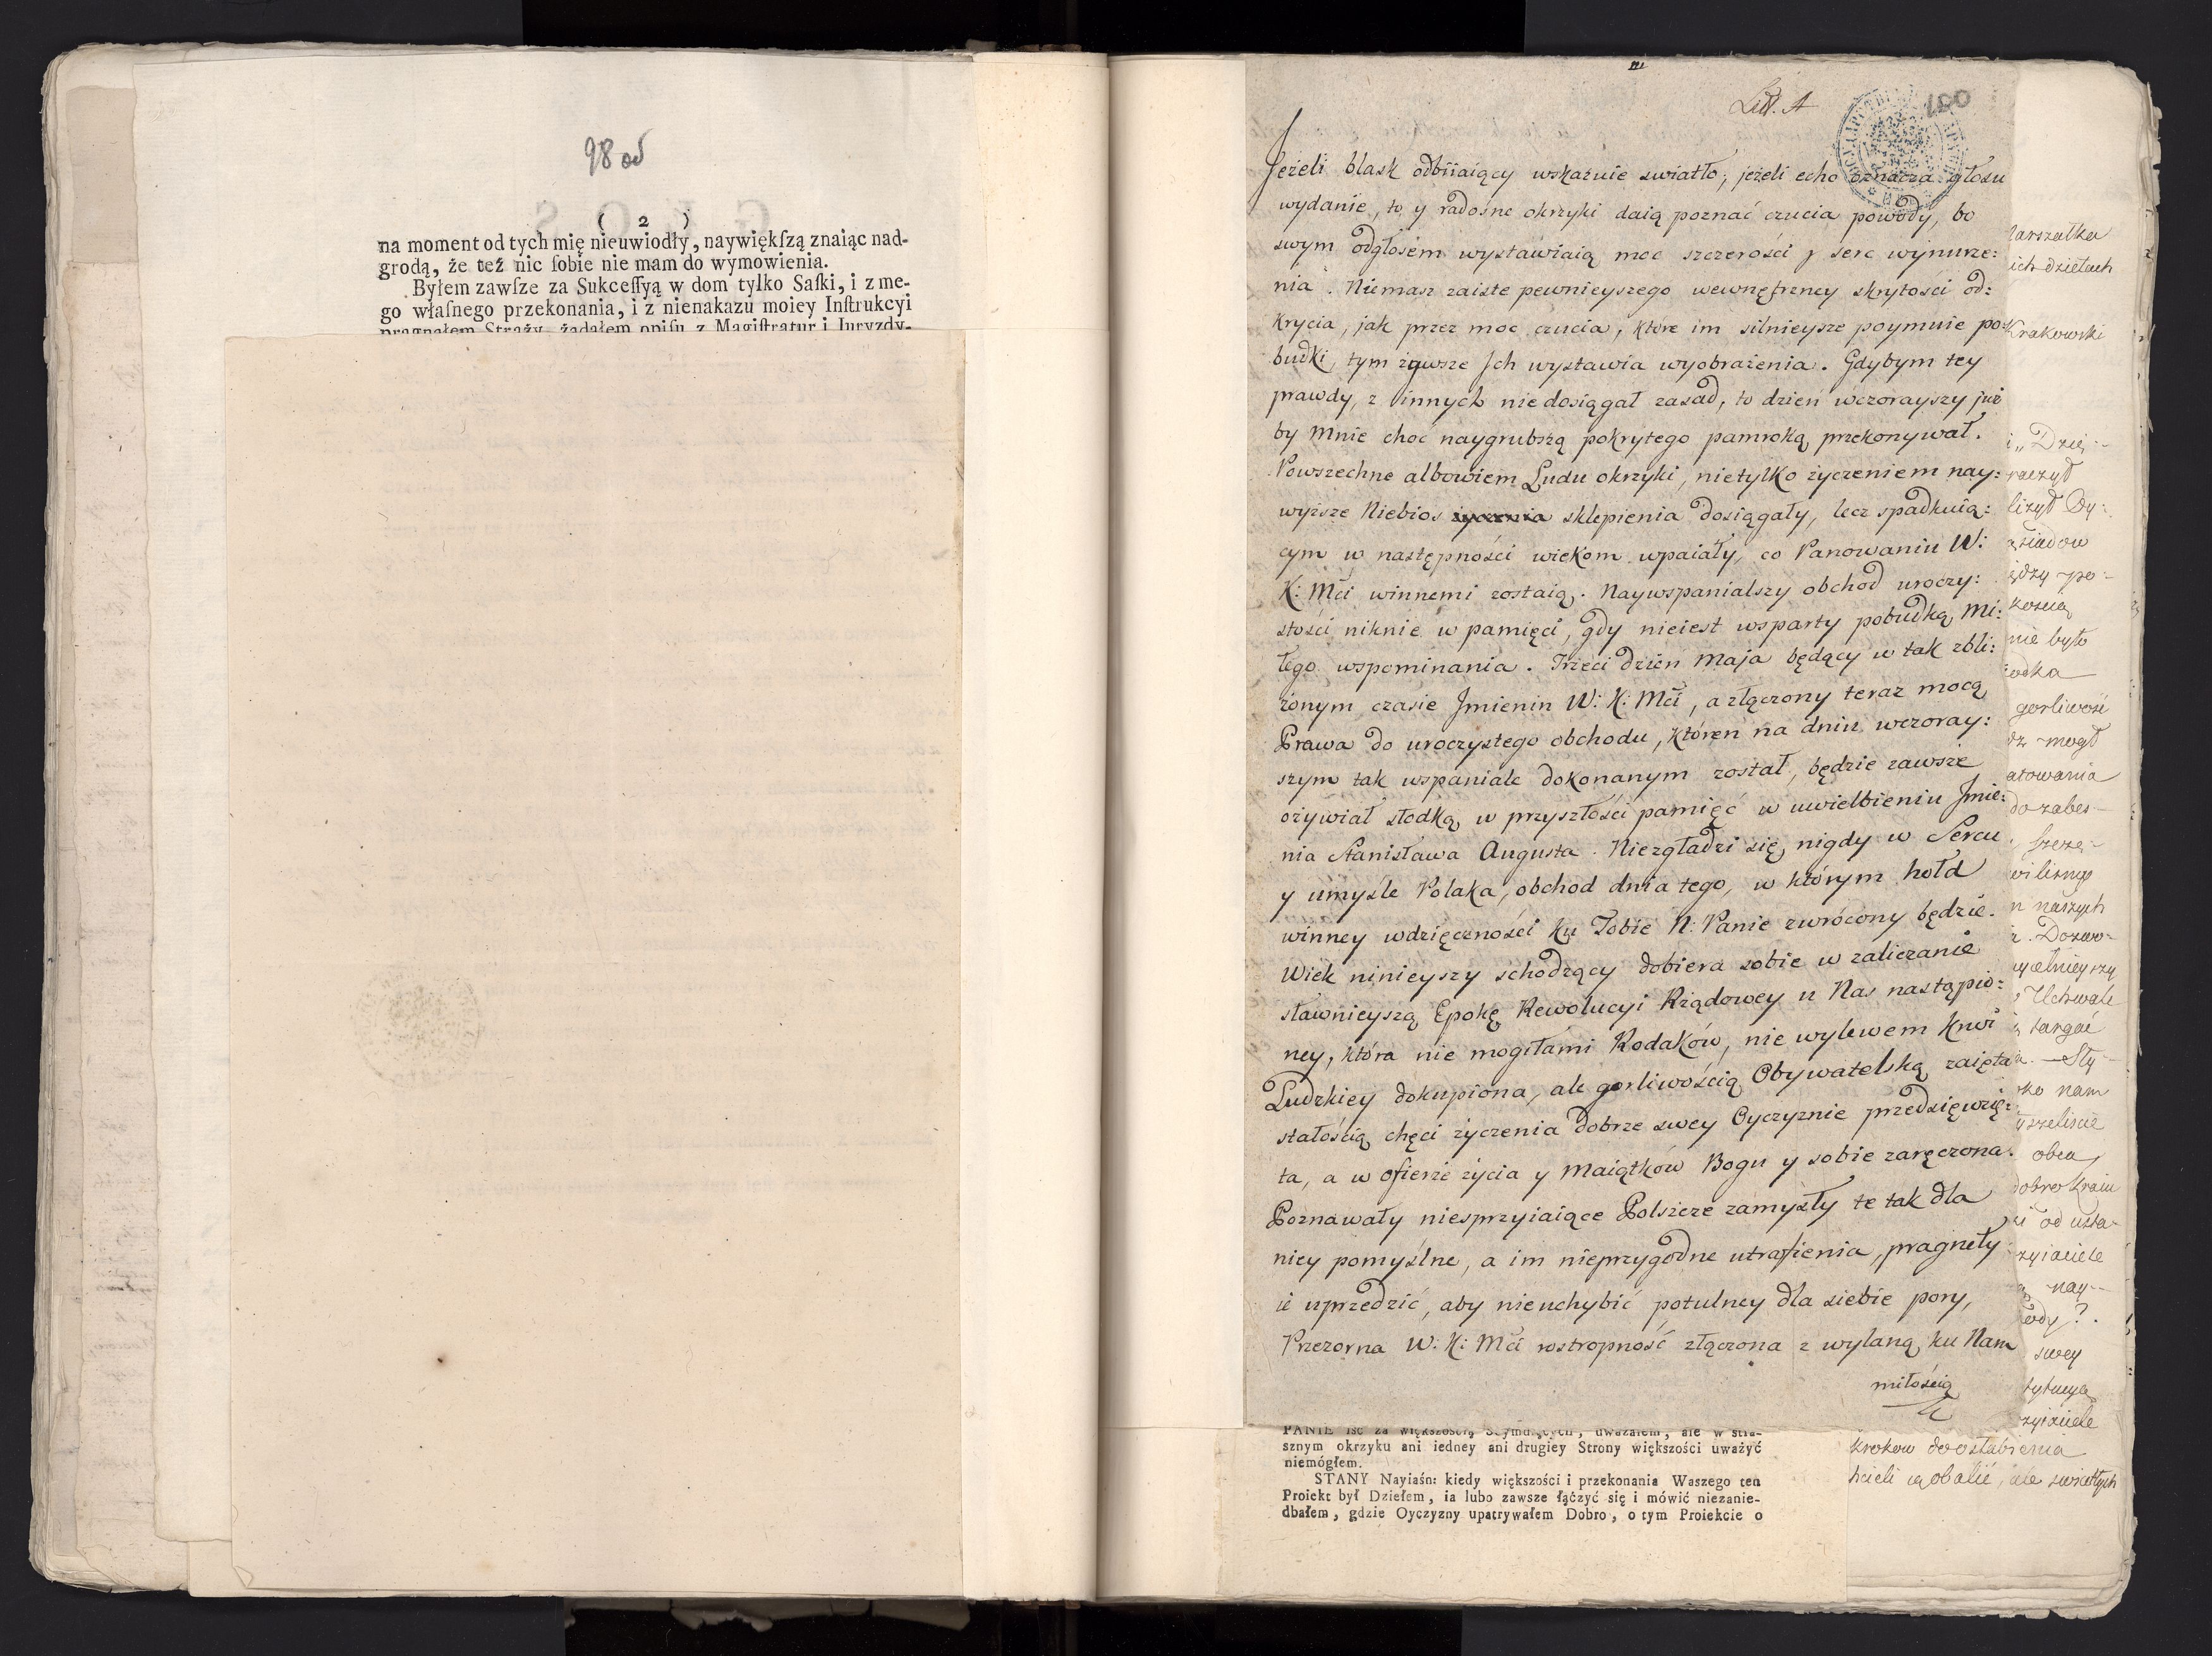 98 od
( 2 )
na moment od tych mię nieuwiodły, naywiękſzą znaiąc nad-
grodą, że też nic ſobie nie mam do wymowienia.
Byłem zawſze za Sukceſſyą w dom tylko Saſki, i z me-
go właſnego przekonania, i z nienakazu moiey Inſtrukcyi
pragnąłem Straży, żądałem opiſu z Magiſtratur i Iuryzdy-
Litt. A
100
Jeżeli blask odbiiaiący wskazuie swiatło, jeżeli echo oznacza głosu
wydanie, to y radosne okrzyki daią poznać czucia powody, bo
swym odgłosem wystawiaią moc szczerości y serc wynurze:
nia. Niemasz zaiste pewnieyszego wewnętrzney skrytości od:
krycia, jak przez moc czucia, które im silnieysze poymuie po:
budki, tym żywsze Jch wystawia wyobrażenia. Gdybym tey
prawdy, z innych nie dosiągał zasad, to dzień wczorayszy już
by mnie choć naygrubszą pokrytego pamroką przekonywał.
Powszechne albowiem Ludu okrzyki, nietylko życzeniem nay:
wyższe Niebios sklepienia dosiągały, lecz spadkuią:
cym w następności wiekom wpaiały, co Panowaniu W:
K: Mći winnemi zostaią. Naywspanialszy obchod uroczy:
stości niknie w pamięci, gdy nieiest wsparty pobudką mi:
łego wspominania. Trzeci dzień Maja będący w tak zbli:
żonym czasie Jmienin W: K: Mći, a złączony teraz mocą
Prawa do uroczystego obchodu, któren na dniu wczoray:
szym tak wspaniale dokonanym został, będzie zawsze
ożywiał słodką w przyszłości pamięć w uwielbieniu Jmie:
nia Stanisława Augusta. Niezgładzi się nigdy w Sercu
y umyśle Polaka, obchod dnia tego, w którym hołd
winney wdzięczności ku Tobie N: Panie zwrócony będzie.
Wiek ninieyszy schodzący dobiera sobie w zaliczanie
sławnieyszą Epokę Rewolucyi Rządowey u Nas nastąpio:
ney, która nie mogiłami Rodaków, nie wylewem krwi
Ludzkiey dokupiona, ale gorliwością Obywatelską zaięta
stałością chęci życzenia dobrze swey Oyczyznie przedsięwzię:
ta, a w ofierze życia y maiątków Bogu y sobie zaręczona.
Poznawały niesprzyiaiące Polszcze zamysły te tak dla
niey pomyślne, a im nieprzygodne utrafienia, pragneły
ie uprzedzić, aby nieuchybić potulney dla siebie pory,
Przezorna W: K: Mći rostropność złączona z wylaną ku Nam
miłością
arszałka
ich dziełach
Krakowski
nie było
gorliwość
mogł
do zabes-
n naszych
Dozwo-
Uchwale
targać
Sły-
nam
obcą
dobro kraiu
od usta-
nay-
swey
PANIE iść za większością Seymuiących, uważałem, ale w stra-
sznym okrzyku ani iedney ani drugiey Strony większości uważyć
niemógłem.
STANY Nayiaśn: kiedy większości i przekonania Waszego ten
Proiekt był Dziełem, ia lubo zawsze łączyć się i mówić niezanie-
dbałem, gdzie Oyczyzny upatrywałem Dobro, o tym Proiekcie o
krokow do osłabienia
hcieli ią obalić, ale swiatłych